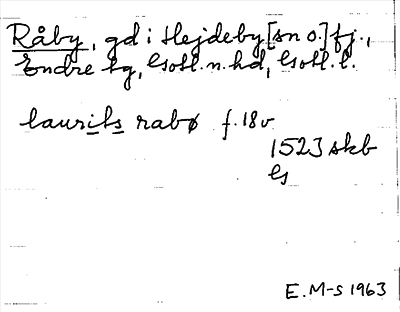 Råby, gd i Hejdeby [sn o.] fj.,
Endre tg, Gotl. n. hd, Gotl. l.
laurits rabø f. 18v
1523 skb
G
E. M-s 1963